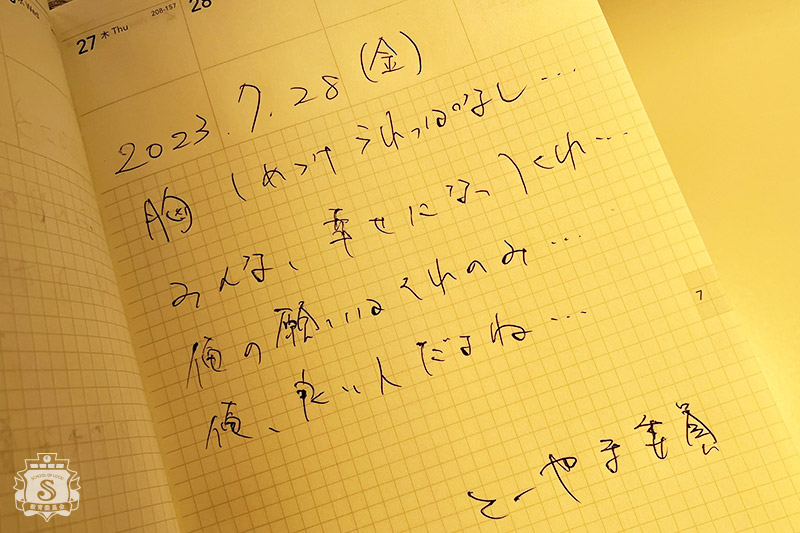 27 木 Thu
208-157
28
2023.7.28(金)
胸しめつけられっぱなし…
みんな、幸せになってくれ…
俺の願いはそれのみ…
俺、良い人だよね…
とーやま委員
7
SCHOOL OF LOCK!
S
教育委員会